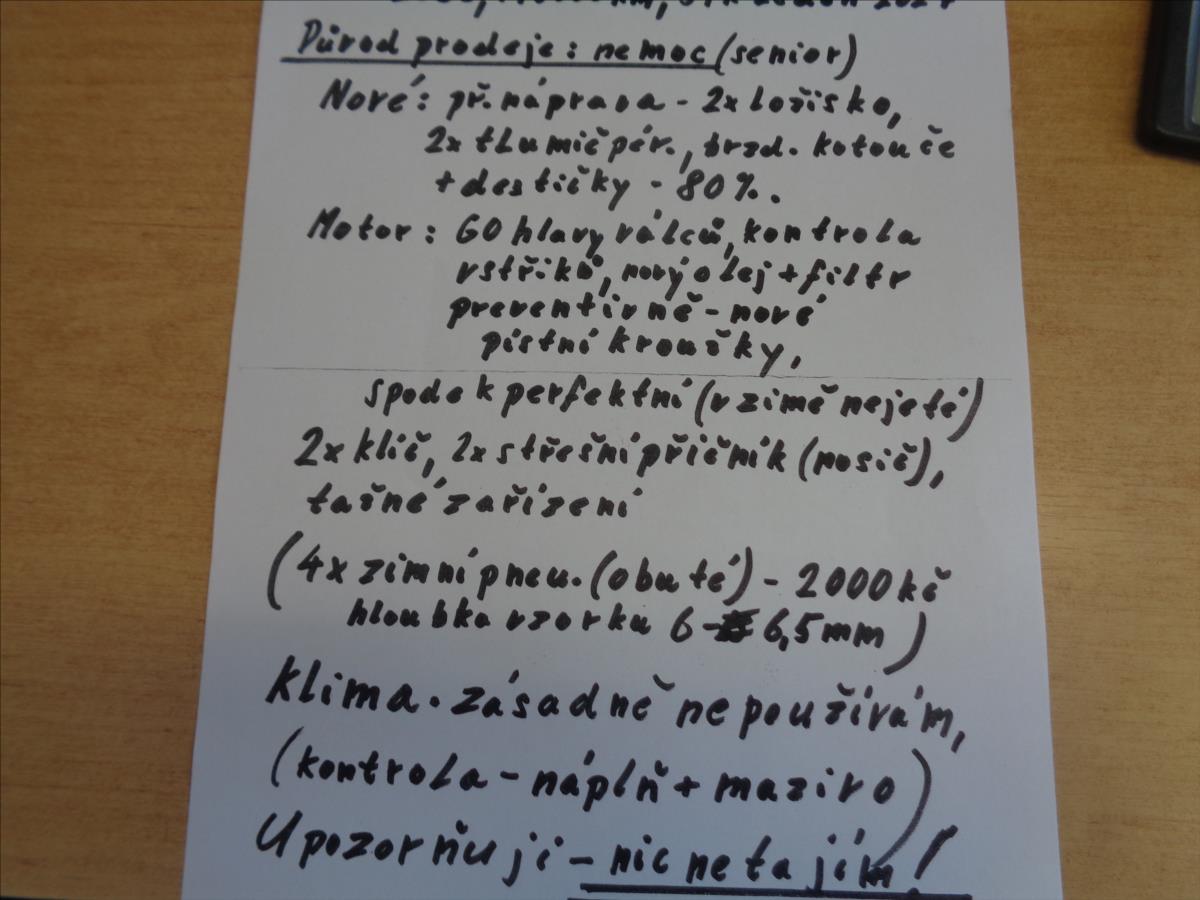 Důvod prodeje: nemoc (senior)
Nové: př. náprava - 2x ložisko,
2x tlumič pér., brzd. kotouče
+ destičky - 80%.
Motor: GO hlavy válců, kontrola
vstřiků, nový olej + filtr
preventivně - nové
pístní kroužky,
spodek perfektní (v zimě nejeté)
2x klíč, 2x střešní příčník (nosič),
tažné zařízení
(4x zimní pneu. (obuté) - 2000 kč
hloubka vzorku 6 - 6,5 mm)
Klima. zásadně nepoužívám,
(kontrola - náplň + mazivo)
Upozorňuji - nic netajím!